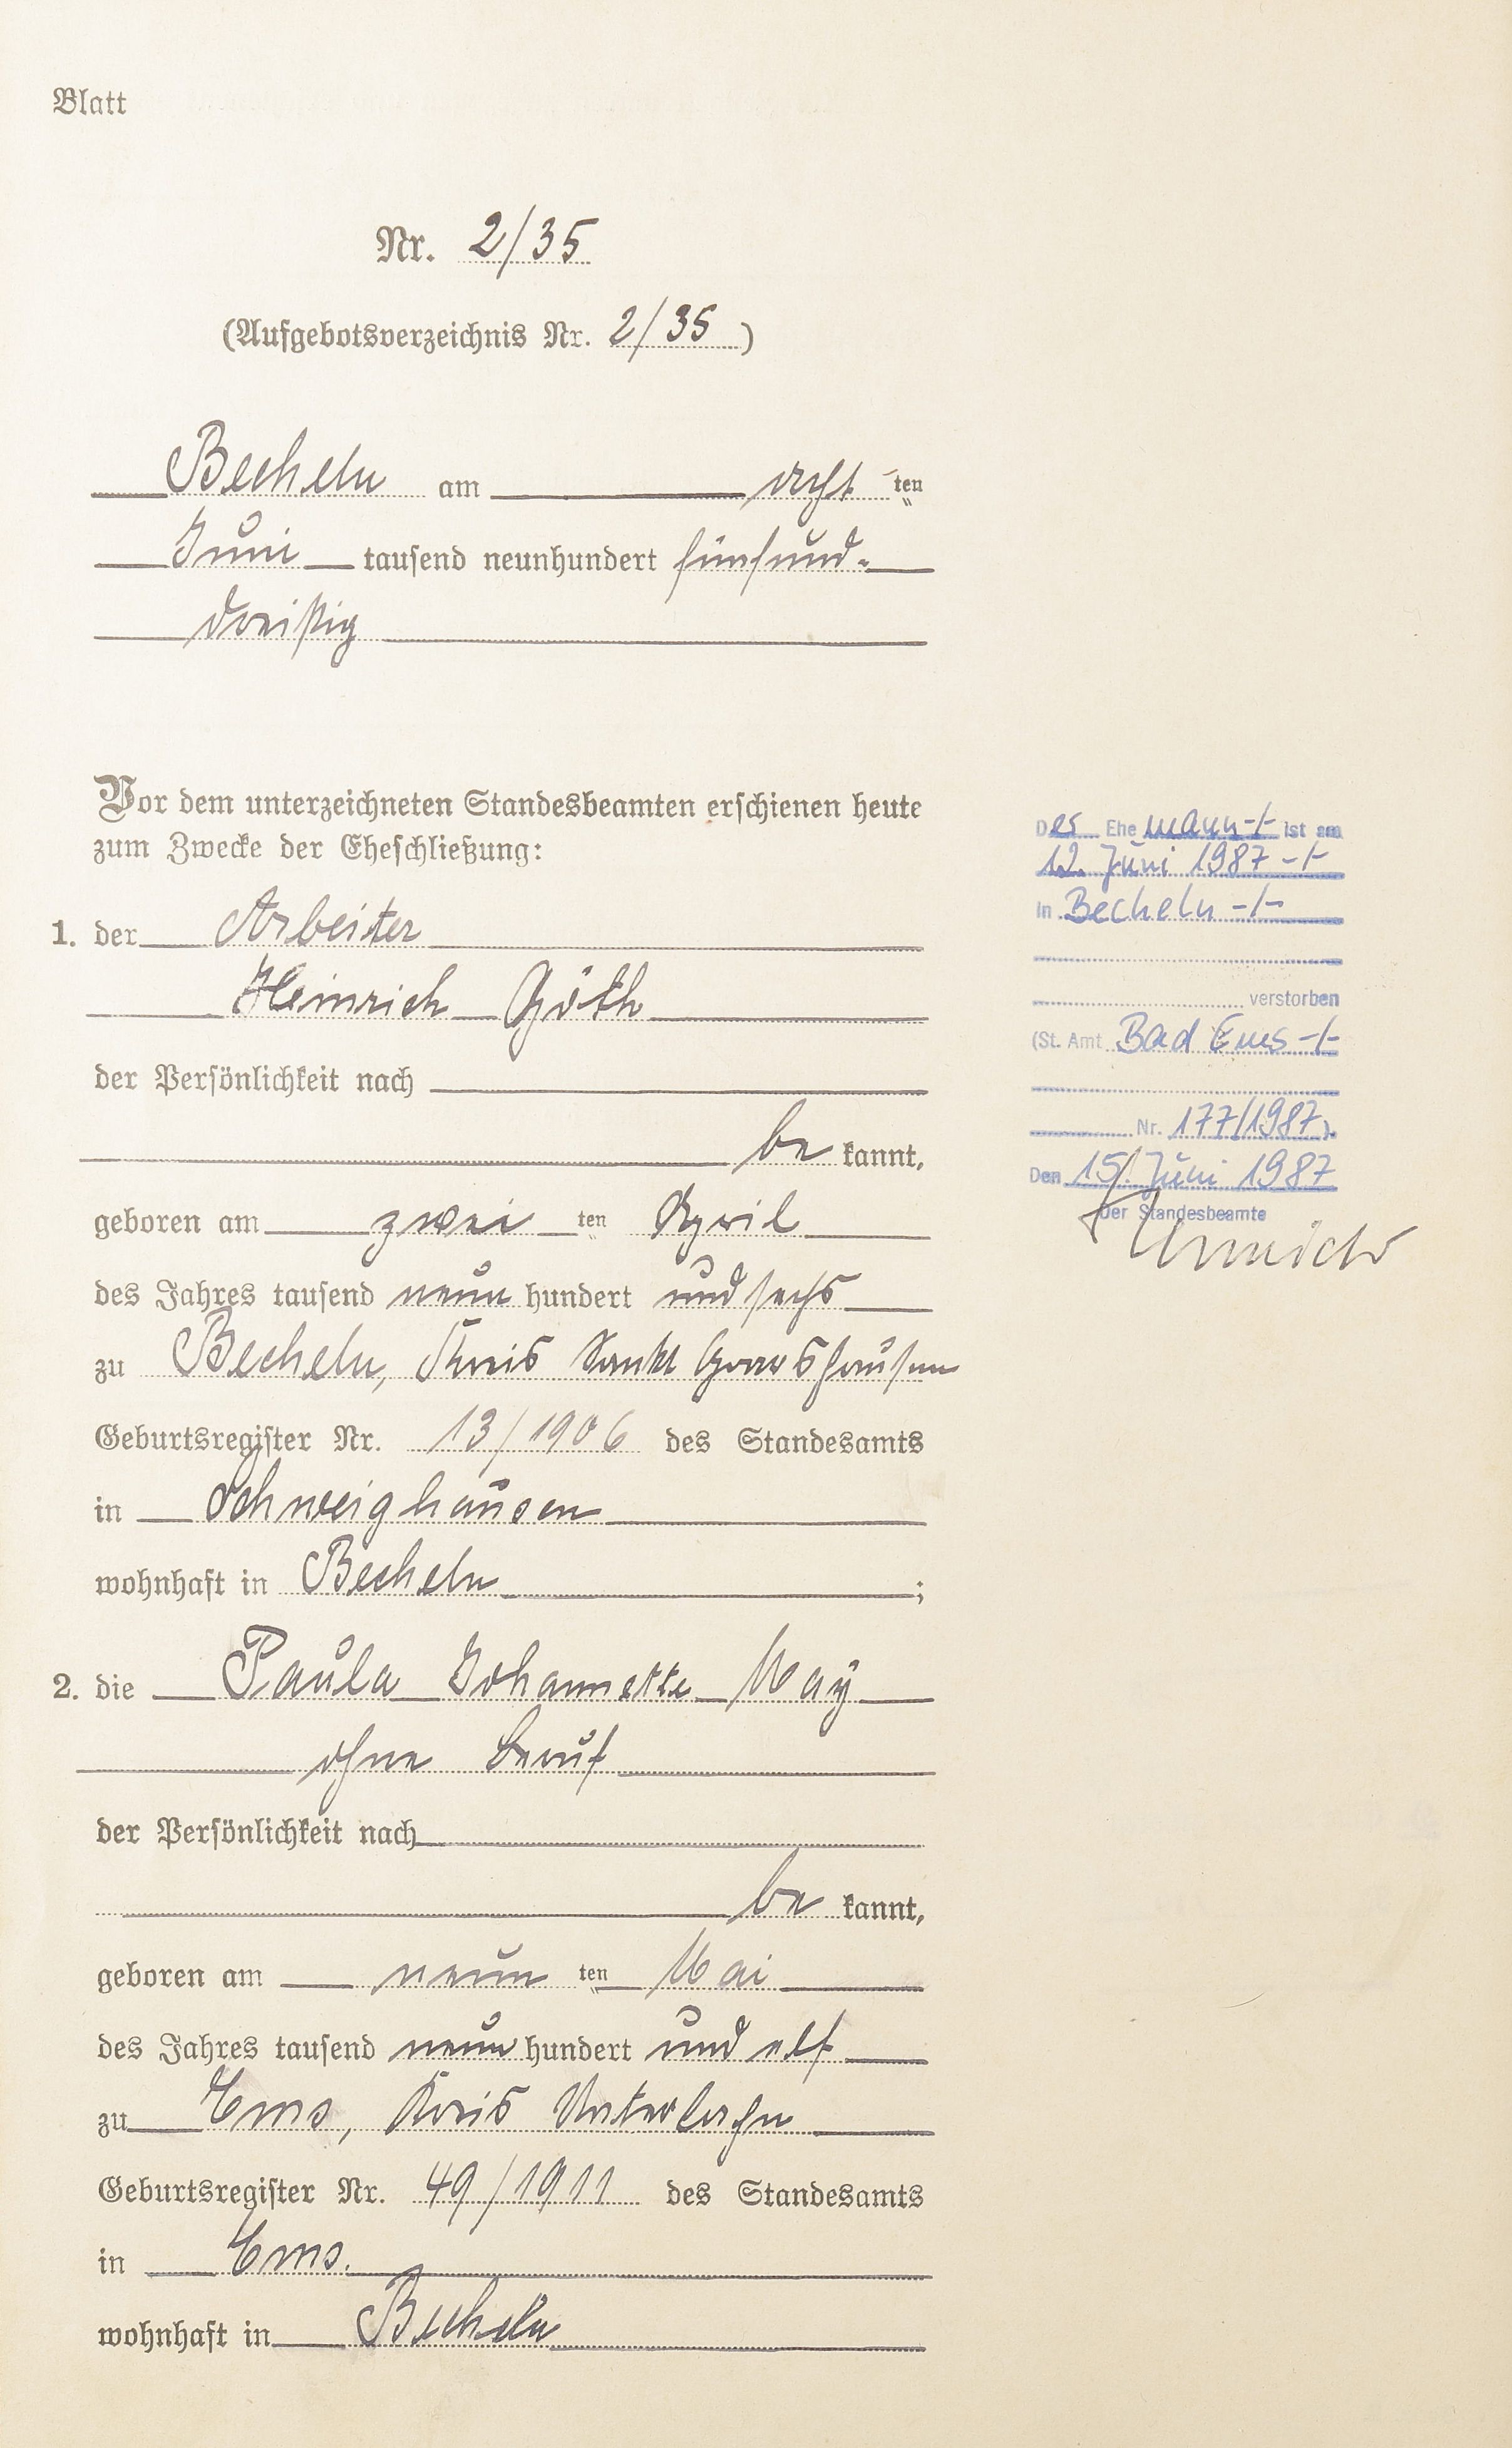 Blatt
Nr. 2/35
(Aufgebotsverzeichnis Nr. 2/35)
Becheln am acht ten
Juni tausend neunhundert fünfund-
dreißig
Vor dem unterzeichneten Standesbeamten erschienen heute
zum Zwecke der Eheschließung:
1. der Arbeiter
Heinrich Göth
der Persönlichkeit nach
be kannt,
geboren am zwei ten April
des Jahres tausend neun hundert und sechs
zu Becheln, Kreis Sankt Goarshausen
Geburtsregister Nr. 13/1906 des Standesamts
in Schweighausen
wohnhaft in Becheln ;
2. die Paula Johannette May
ohne Beruf
der Persönlichkeit nach
be kannt,
geboren am neun ten Mai
des Jahres tausend neun hundert und elf
zu Ems, Kreis Unterlahn
Geburtsregister Nr. 49/1911 des Standesamts
in Ems.
wohnhaft in Becheln
Der Ehemann -/- ist am
12. Juni 1987 -/-
in Becheln -/-
verstorben
(St. Amt Bad Ems -/-
Nr. 177/1987).
Den 15. Juni 1987
Der Standesbeamte